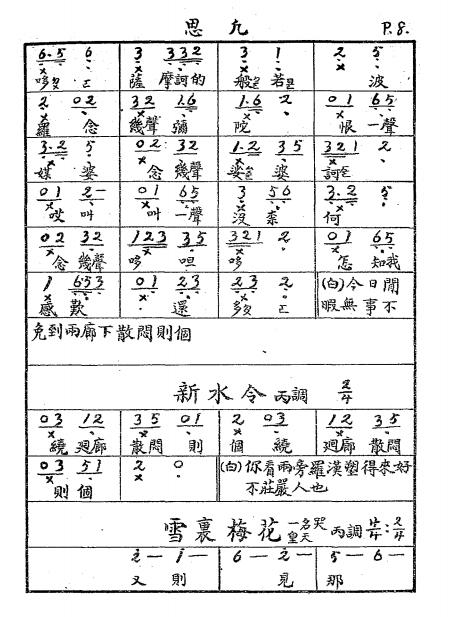 思凡 P.8.
6.5 6 3 332 3 1 2 5
哆 工 薩 摩訶的 般 若 波
2 02 32 1.6 1.6 2 01 65
羅 念 幾聲 彌 陀 恨 一聲
3.2 5 02 32 1.2 35 321 2
媒 婆 念 幾聲 婆 婆 訶
01 2- 01 65 3 56 3.2 5
哎 叫 叫 一聲 沒 柰 何
02 32 123 35 321 2 01 65
念 幾聲 哆 呾 哆 怎 知我
1 653 01 23 23 2 (白)今日閒
感 歎 還 多 工 暇無事不
免到兩廊下散悶則個
新水令 丙調 2/4
03 12 35 01 2 03 12 35
繞 廻廊 散悶 則 個 繞 廻廊 散悶
03 51 2 0 (白)你看兩旁羅漢塑得來好
則 個 不莊嚴人也
雪裏梅花 一名哭皇天 丙調 4/4:2/4
2 — 1 — 6 — 2 — 5 — 6 —
又 則 見 那